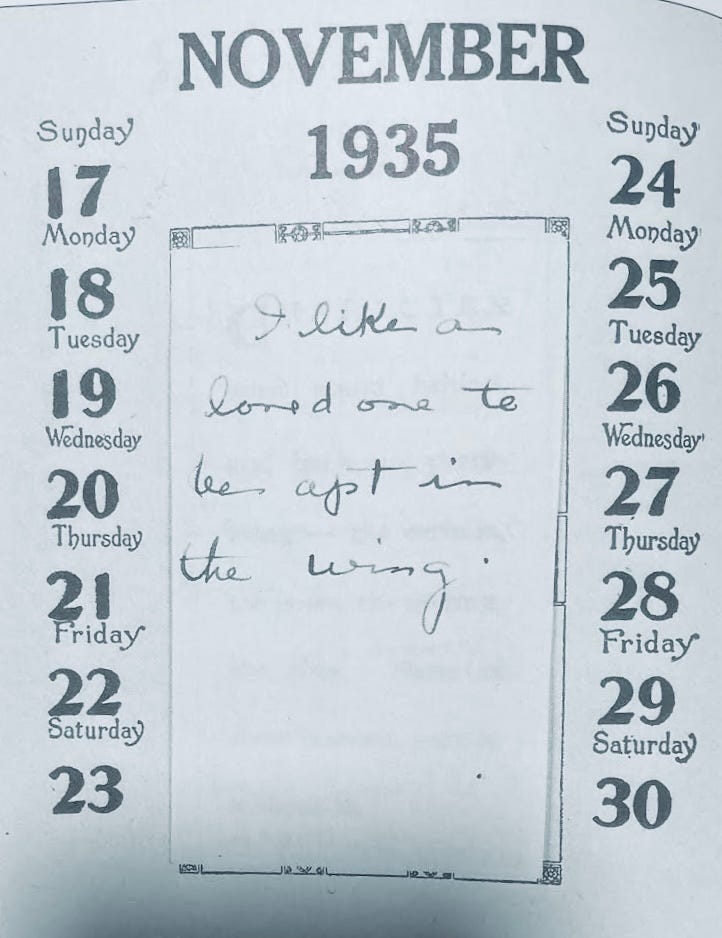 NOVEMBER
1935
Sunday
17
Monday
18
Tuesday
19
Wednesday
20
Thursday
21
Friday
22
Saturday
23
I like a
loved one to
be apt in
the wing.
Sunday
24
Monday
25
Tuesday
26
Wednesday
27
Thursday
28
Friday
29
Saturday
30